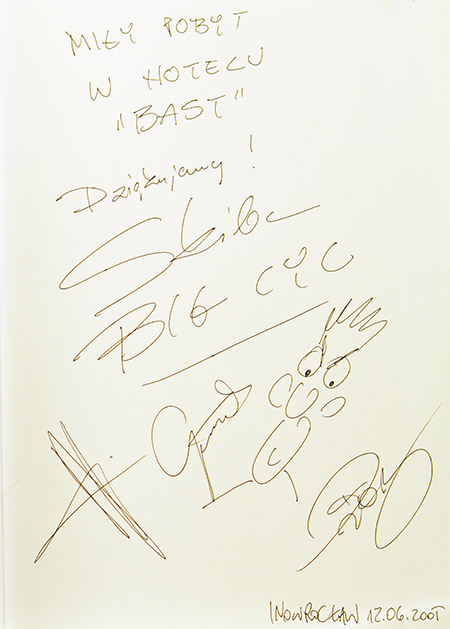 MIŁY POBYT
W HOTELU
"BAST"
Dziękujemy!
Skiba
BIG CYC
INOWROCŁAW 12.06.2005